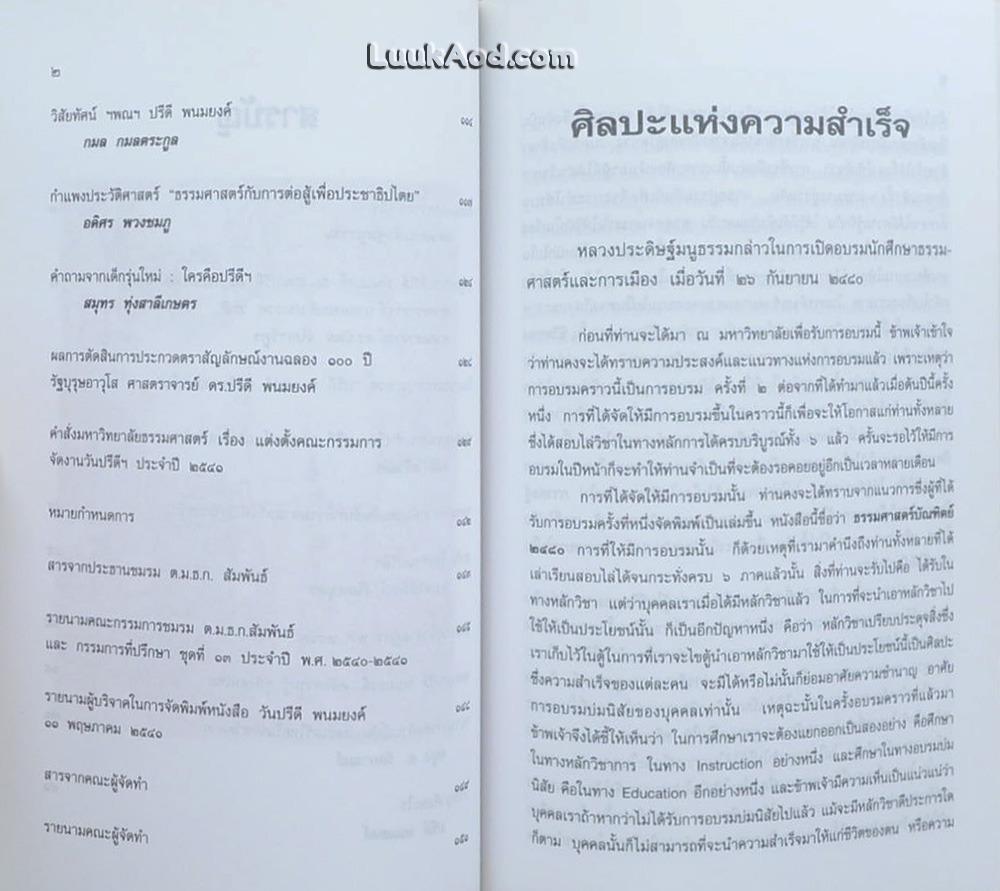 LuukAod.com
๒
วิสัยทัศน์ ฯพณฯ ปรีดี พนมยงค์
กมล กมลตระกูล
กำแพงประวัติศาสตร์ "ธรรมศาสตร์กับการต่อสู้เพื่อประชาธิปไตย"
อดิศร พวงชมภู
คำถามจากเด็กรุ่นใหม่ : ใครคือปรีดีฯ
สมุทร ทุ่งสาลีเกษตร
ผลการตัดสินการประกวดตราสัญลักษณ์งานฉลอง ๑๐๐ ปี
รัฐบุรุษอาวุโส ศาสตราจารย์ ดร.ปรีดี พนมยงค์
คำสั่งมหาวิทยาลัยธรรมศาสตร์ เรื่อง แต่งตั้งคณะกรรมการ
จัดงานวันปรีดีฯ ประจำปี ๒๕๔๑
หมายกำหนดการ
สารจากประธานชมรม ต.ม.ธ.ก. สัมพันธ์
รายนามคณะกรรมการชมรม ต.ม.ธ.ก.สัมพันธ์
และ กรรมการที่ปรึกษา ชุดที่ ๑๓ ประจำปี พ.ศ. ๒๕๔๐-๒๕๔๑
รายนามผู้บริจาคในการจัดพิมพ์หนังสือ วันปรีดี พนมยงค์
๑๑ พฤษภาคม ๒๕๔๑
สารจากคณะผู้จัดทำ
รายนามคณะผู้จัดทำ
ศิลปะแห่งความสำเร็จ
หลวงประดิษฐ์มนูธรรมกล่าวในการเปิดอบรมนักศึกษาธรรม-
ศาสตร์และการเมือง เมื่อวันที่ ๒๖ กันยายน ๒๔๘๐
ก่อนที่ท่านจะได้มา ณ มหาวิทยาลัยเพื่อรับการอบรมนี้ ข้าพเจ้าเข้าใจ
ว่าท่านคงจะได้ทราบความประสงค์และแนวทางแห่งการอบรมแล้ว เพราะเหตุว่า
การอบรมคราวนี้เป็นการอบรม ครั้งที่ ๒ ต่อจากที่ได้ทำมาแล้วเมื่อต้นปีนี้ครั้ง
หนึ่ง การที่ได้จัดให้มีการอบรมขึ้นในคราวนี้ก็เพื่อจะให้โอกาสแก่ท่านทั้งหลาย
ซึ่งได้สอบไล่วิชาในทางหลักการได้ครบบริบูรณ์ทั้ง ๖ แล้ว ครั้นจะรอไว้ให้มีการ
อบรมในปีหน้าก็จะทำให้ท่านจำเป็นที่จะต้องรอคอยอยู่อีกเป็นเวลาหลายเดือน
การที่ได้จัดให้มีการอบรมนั้น ท่านคงจะได้ทราบจากแนวการซึ่งผู้ที่ได้
รับการอบรมครั้งที่หนึ่งจัดพิมพ์เป็นเล่มขึ้น หนังสือนี้ชื่อว่า ธรรมศาสตร์บัณฑิตย์
๒๔๘๐ การที่ให้มีการอบรมนั้น ก็ด้วยเหตุที่เรามาคำนึงถึงท่านทั้งหลายที่ได้
เล่าเรียนสอบไล่ได้จนกระทั่งครบ ๖ ภาคแล้วนั้น สิ่งที่ท่านจะรับไปคือ ได้รับใน
ทางหลักวิชา แต่ว่าบุคคลเราเมื่อได้มีหลักวิชาแล้ว ในการที่จะนำเอาหลักวิชาไป
ใช้ให้เป็นประโยชน์นั้น ก็เป็นอีกปัญหาหนึ่ง คือว่า หลักวิชาเปรียบประดุจสิ่งซึ่ง
เราเก็บไว้ในตู้ในการที่เราจะไขตู้นำเอาหลักวิชามาใช้ให้เป็นประโยชน์นี้เป็นศิลปะ
ซึ่งความสำเร็จของแต่ละคน จะมีได้หรือไม่นั้นก็ย่อมอาศัยความชำนาญ อาศัย
การอบรมบ่มนิสัยของบุคคลเท่านั้น เหตุฉะนั้นในครั้งอบรมคราวที่แล้วมา
ข้าพเจ้าจึงได้ชี้ให้เห็นว่า ในการศึกษาเราจะต้องแยกออกเป็นสองอย่าง คือศึกษา
ในทางหลักวิชาการ ในทาง Instruction อย่างหนึ่ง และศึกษาในทางอบรมบ่ม
นิสัย คือในทาง Education อีกอย่างหนึ่ง และข้าพเจ้ามีความเห็นเป็นแน่วแน่ว่า
บุคคลเราถ้าหากว่าไม่ได้รับการอบรมบ่มนิสัยไปแล้ว แม้จะมีหลักวิชาดีประการใด
ก็ตาม บุคคลนั้นก็ไม่สามารถที่จะนำความสำเร็จมาให้แก่ชีวิตของตน หรือความ